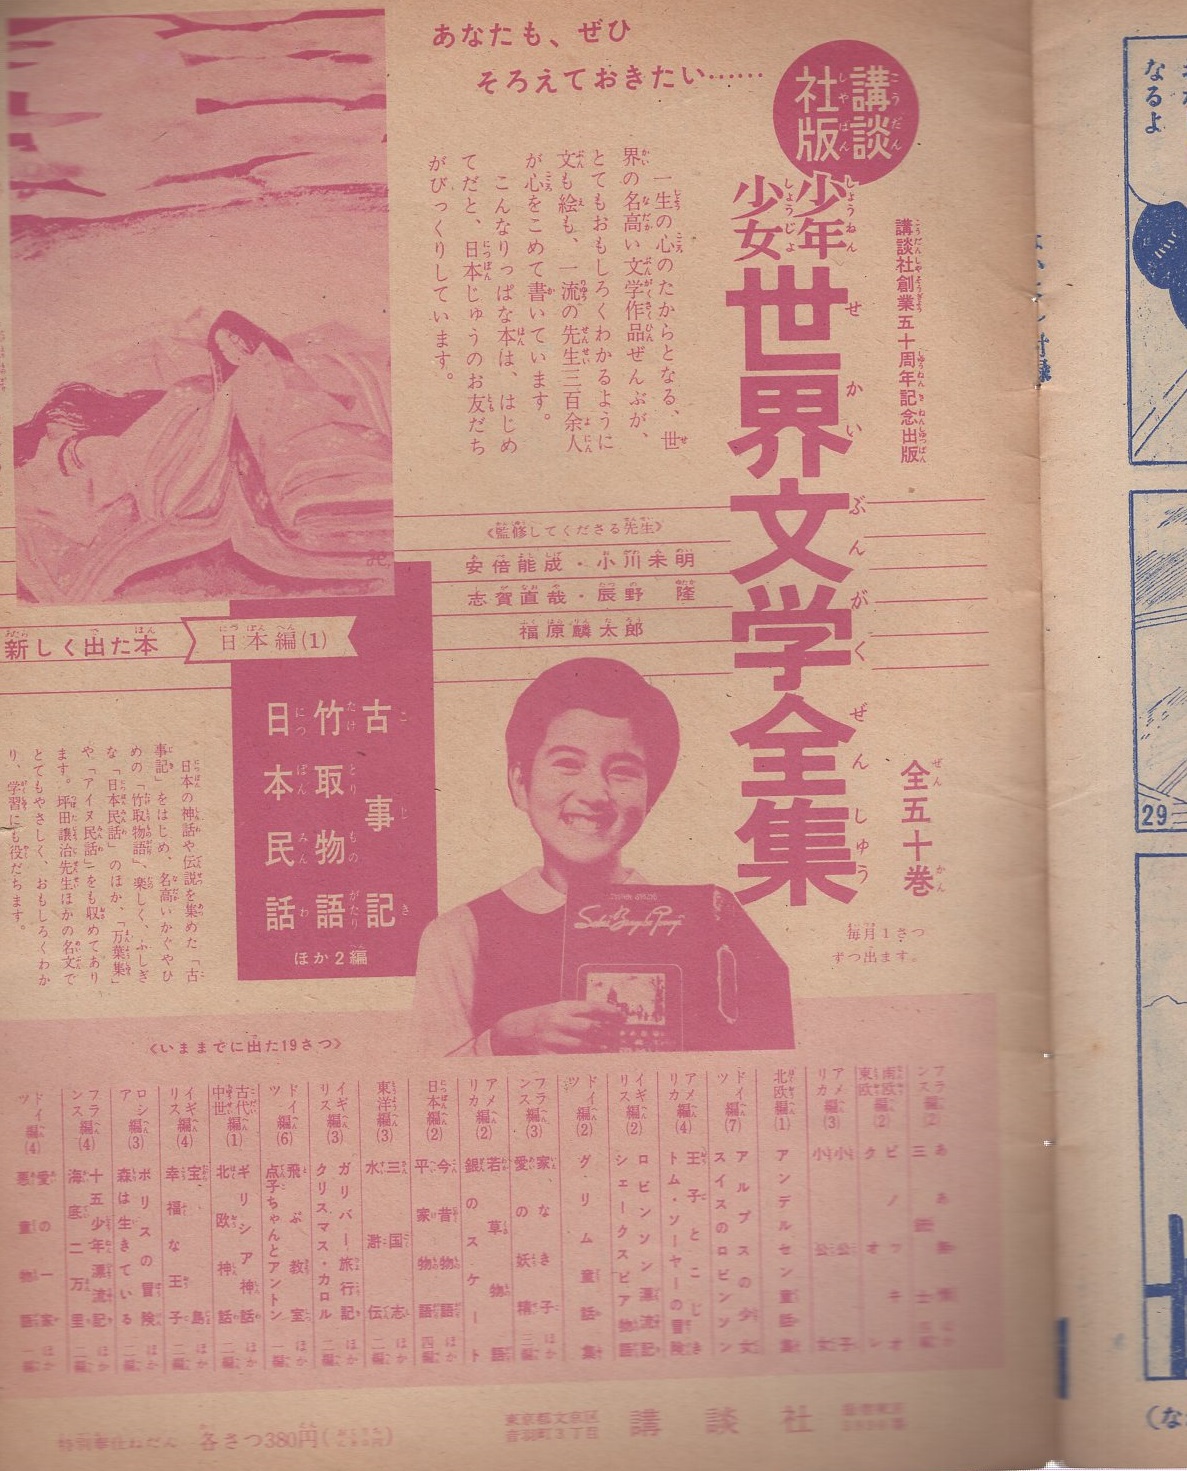 あなたも、ぜひ
そろえておきたい……
講談
社版
講談社創業五十周年記念出版
少年
少女
世界文学全集
全五十巻
毎月1さつ
ずつ出ます。
一生の心のたからとなる、世
界の名高い文学作品ぜんぶが、
とてもおもしろくわかるように
文も絵も、一流の先生三百余人
が心をこめて書いています。
こんなりっぱな本は、はじめ
てだと、日本じゅうのお友だち
がびっくりしています。
《監修してくださる先生》
安倍能成・小川未明
志賀直哉・辰野 隆
福原麟太郎
新しく出た本
日本編(1)
古事記
竹取物語
日本民話
ほか2編
日本の神話や伝説を集めた「古
事記」をはじめ、名高いかぐやひ
めの「竹取物語」、楽しく、ふしぎ
な「日本民話」のほか、「万葉集」
や「アイヌ民話」をも収めてあり
ます。坪田譲治先生ほかの名文で
とてもやさしく、おもしろくわか
り、学習にも役だちます。
《いままでに出た19さつ》
フランス編(2)
ああ無情
三銃士
南欧東欧編(2)
ピノッキオ
クオレ
アメリカ編(3)
小公子
小公女
北欧編(1)
アンデルセン童話集
ドイツ編(7)
アルプスの少女
スイスのロビンソン
アメリカ編(4)
王子とこじき
トム・ソーヤーの冒険
イギリス編(2)
ロビンソン漂流記
シェークスピア物語
ドイツ編(2)
グリム童話集
フランス編(3)
家なき子
愛の妖精
ほか三編
アメリカ編(2)
若草物語
銀のスケート
日本編(2)
今昔物語
平家物語
ほか四編
東洋編(3)
三国志
水滸伝
ほか二編
イギリス編(3)
ガリバー旅行記
クリスマス・カロル
ほか二編
ドイツ編(6)
飛ぶ教室
点子ちゃんとアントン
ほか一編
古代中世編(1)
ギリシア神話
北欧神話
ほか二編
イギリス編(4)
宝島
幸福な王子
ほか二編
ロシア編(3)
ボリスの冒険
森は生きている
ほか二編
フランス編(4)
十五少年漂流記
海底二万里
ほか二編
ドイツ編(4)
愛の一家
悪童物語
ほか一編
特別奉仕ねだん 各さつ380円
東京都文京区
音羽町3丁目
講談社
なるよ
29
(な